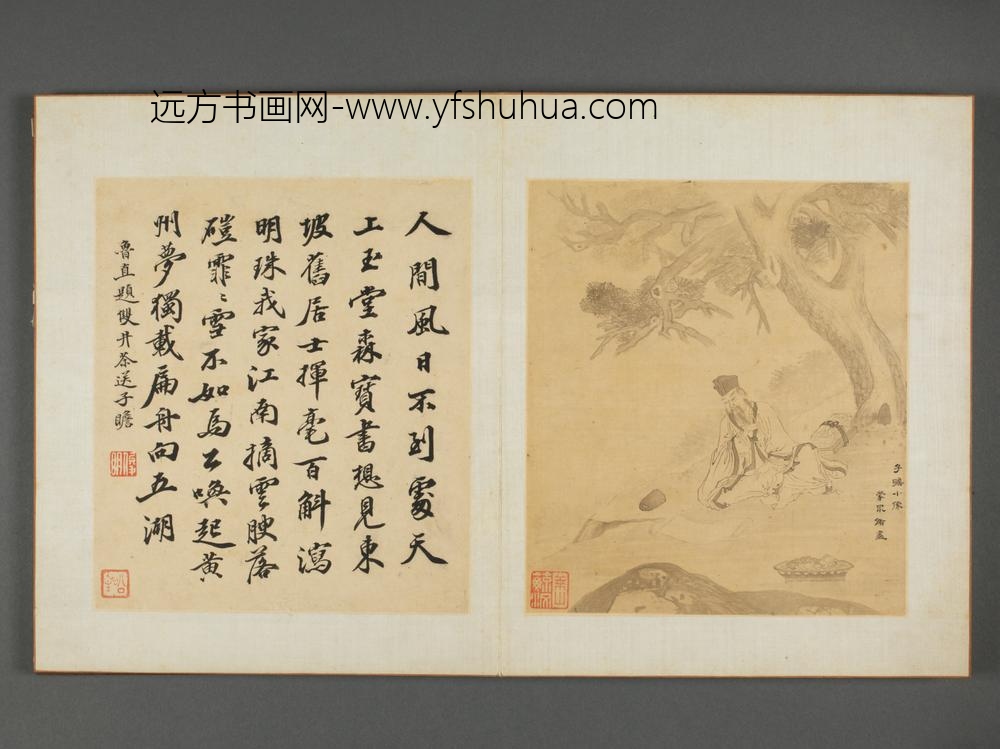 远方书画网-www.yfshuhua.com
人間風日不到處天
上玉堂森寶書想見東
坡舊居士揮毫百斛瀉
明珠我家江南摘雲腴落
磑霏〻雪不如爲公喚起黃
州夢獨載扁舟向五湖
魯直題雙井茶送子瞻
子瞻小像